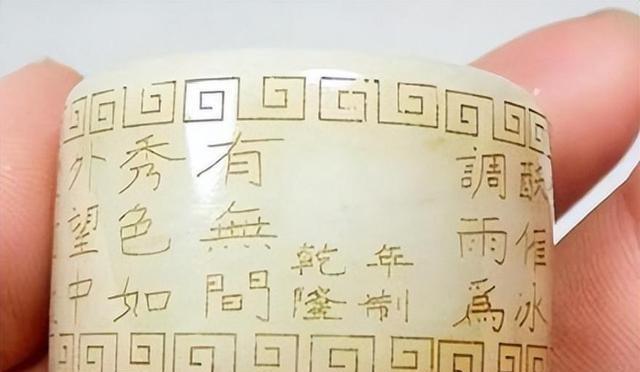 外望中
秀色如
有無間
乾隆
年制
調雨爲
酥催冰